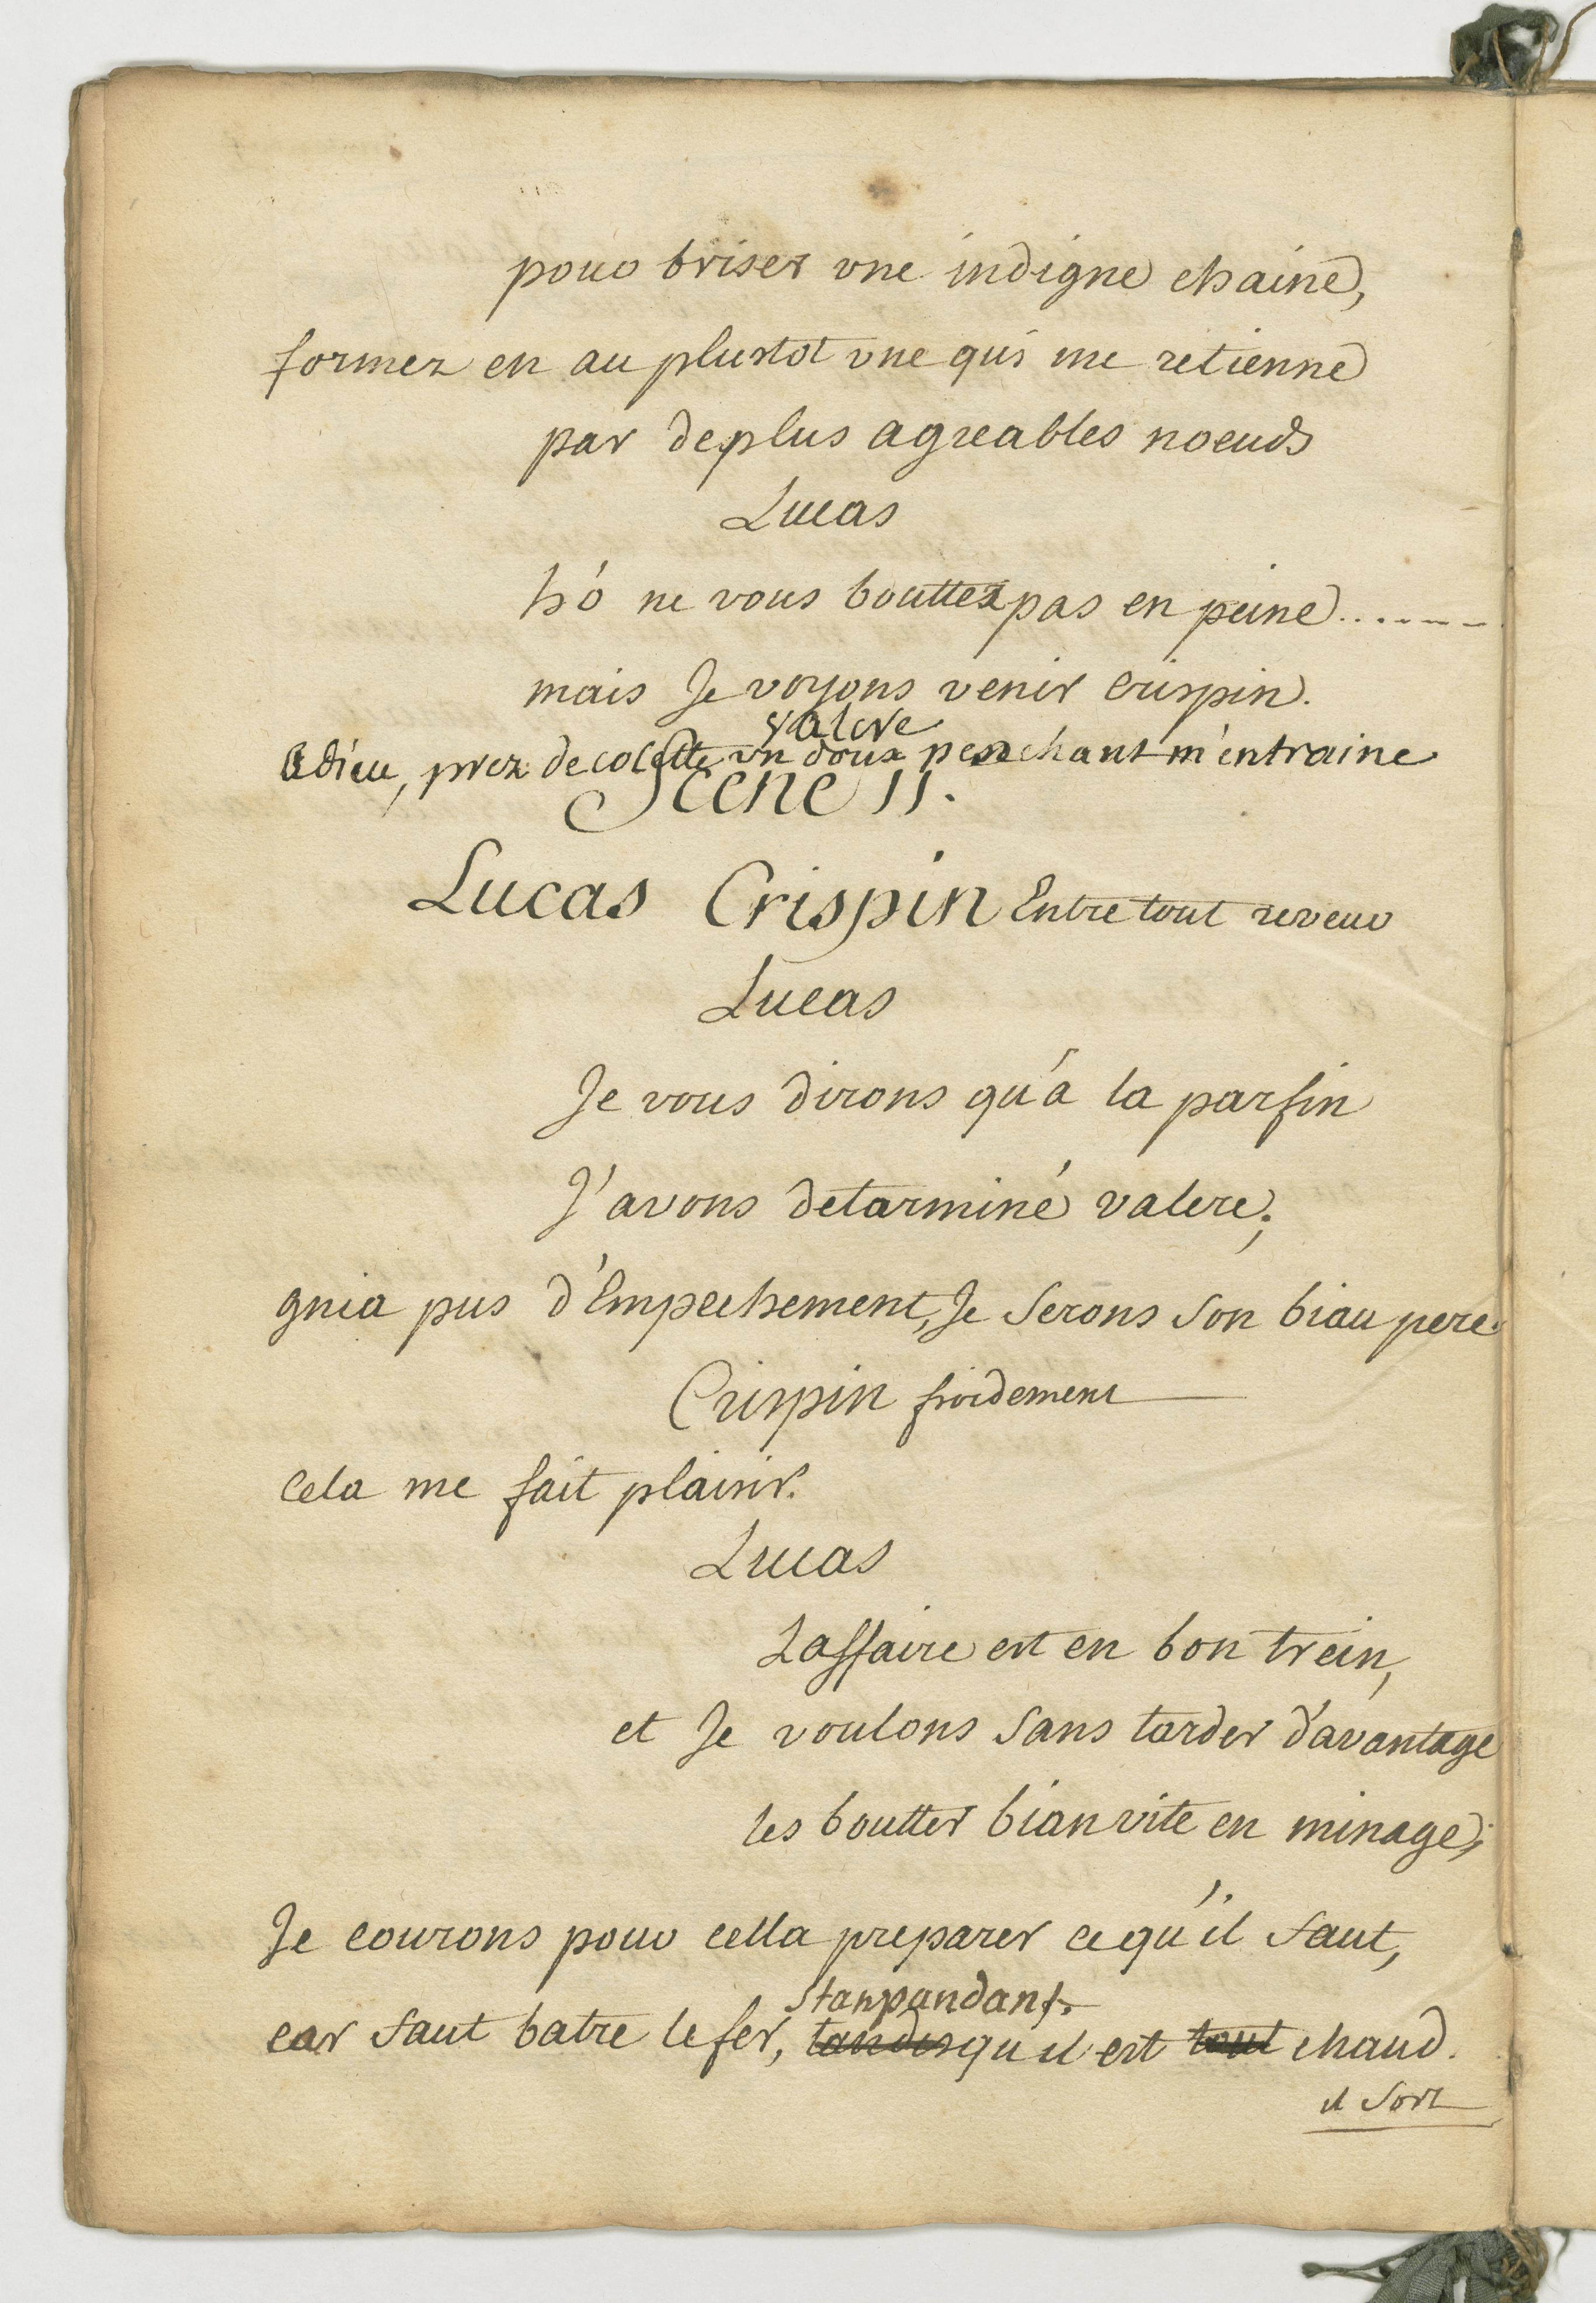 pour briser une indigne chaine,
formez en au plustot une qui me retienne
par de plus agreables noeuds
Lucas
hó ne vous bouttez pas en peine.......
mais Je voyons venir crispin.
valere
adieu, prez de colette un doux penchant m'entraine
Scene 11.
Lucas Crispin Entre tout reveur
Lucas
Je vous dirons qu'a la parfin
J'avons determiné valere;
gnia pus d'Empechement, Je serons son biau pere.
Crispin froidement
cela me fait plaisir.
Lucas
Laffaire est en bon trein,
et Je voulons sans tarder d'avantage
les boutter bian vite en minage;
Je courons pour cella preparer ce qu'il faut,
stanpandant
car faut batre le fer, tandis qu'il est tout chaud.
il sort